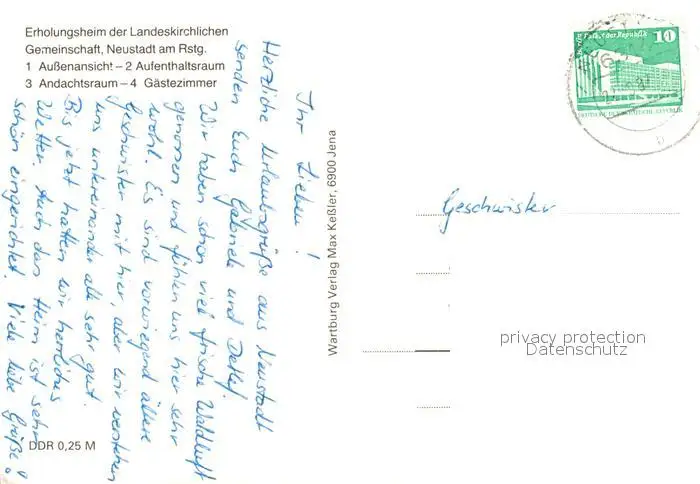 Erholungsheim der Landeskirchlichen
Gemeinschaft, Neustadt am Rstg.
1 Außenansicht – 2 Aufenthaltsraum
3 Andachtsraum – 4 Gästezimmer
Ihr Lieben!
Herzliche Urlaubsgrüße aus Neustadt
senden Euch Gabriele und Detlef.
Wir haben schon viel frische Waldluft
genossen und fühlen uns hier sehr
wohl. Es sind vorwiegend ältere
Geschwister mit hier, aber wir verstehen
uns untereinander alle sehr gut.
Bis jetzt hatten wir herrliches
Wetter. Auch das Heim ist sehr
schön eingerichtet. Viele liebe Grüße!
DDR 0,25 M
Wartburg Verlag Max Keßler, 6900 Jena
Berlin Palast der Republik 10
DEUTSCHE DEMOKRATISCHE REPUBLIK
Geschwister
privacy protection
Datenschutz